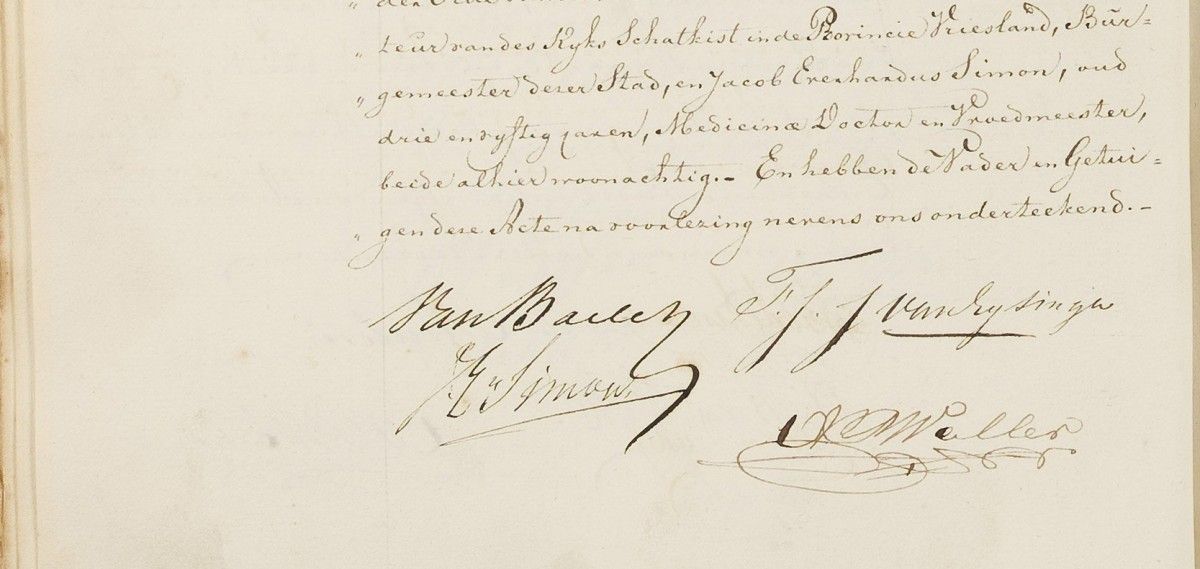 „ teur van des Ryks Schatkist in de Provincie Vriesland, Bur=
„ gemeester dezer Stad, en Jacob Everhardus Simon, oud
drie en vyftig jaren, Medicinæ Doctor en Vroedmeester,
beide alhier woonachtig.– En hebben de Vader en Getui=
„ gen deze Acte na voorlezing nevens ons onderteekend.–
Van Baelen F. J. J van Eysinga
JE Simon
Waller